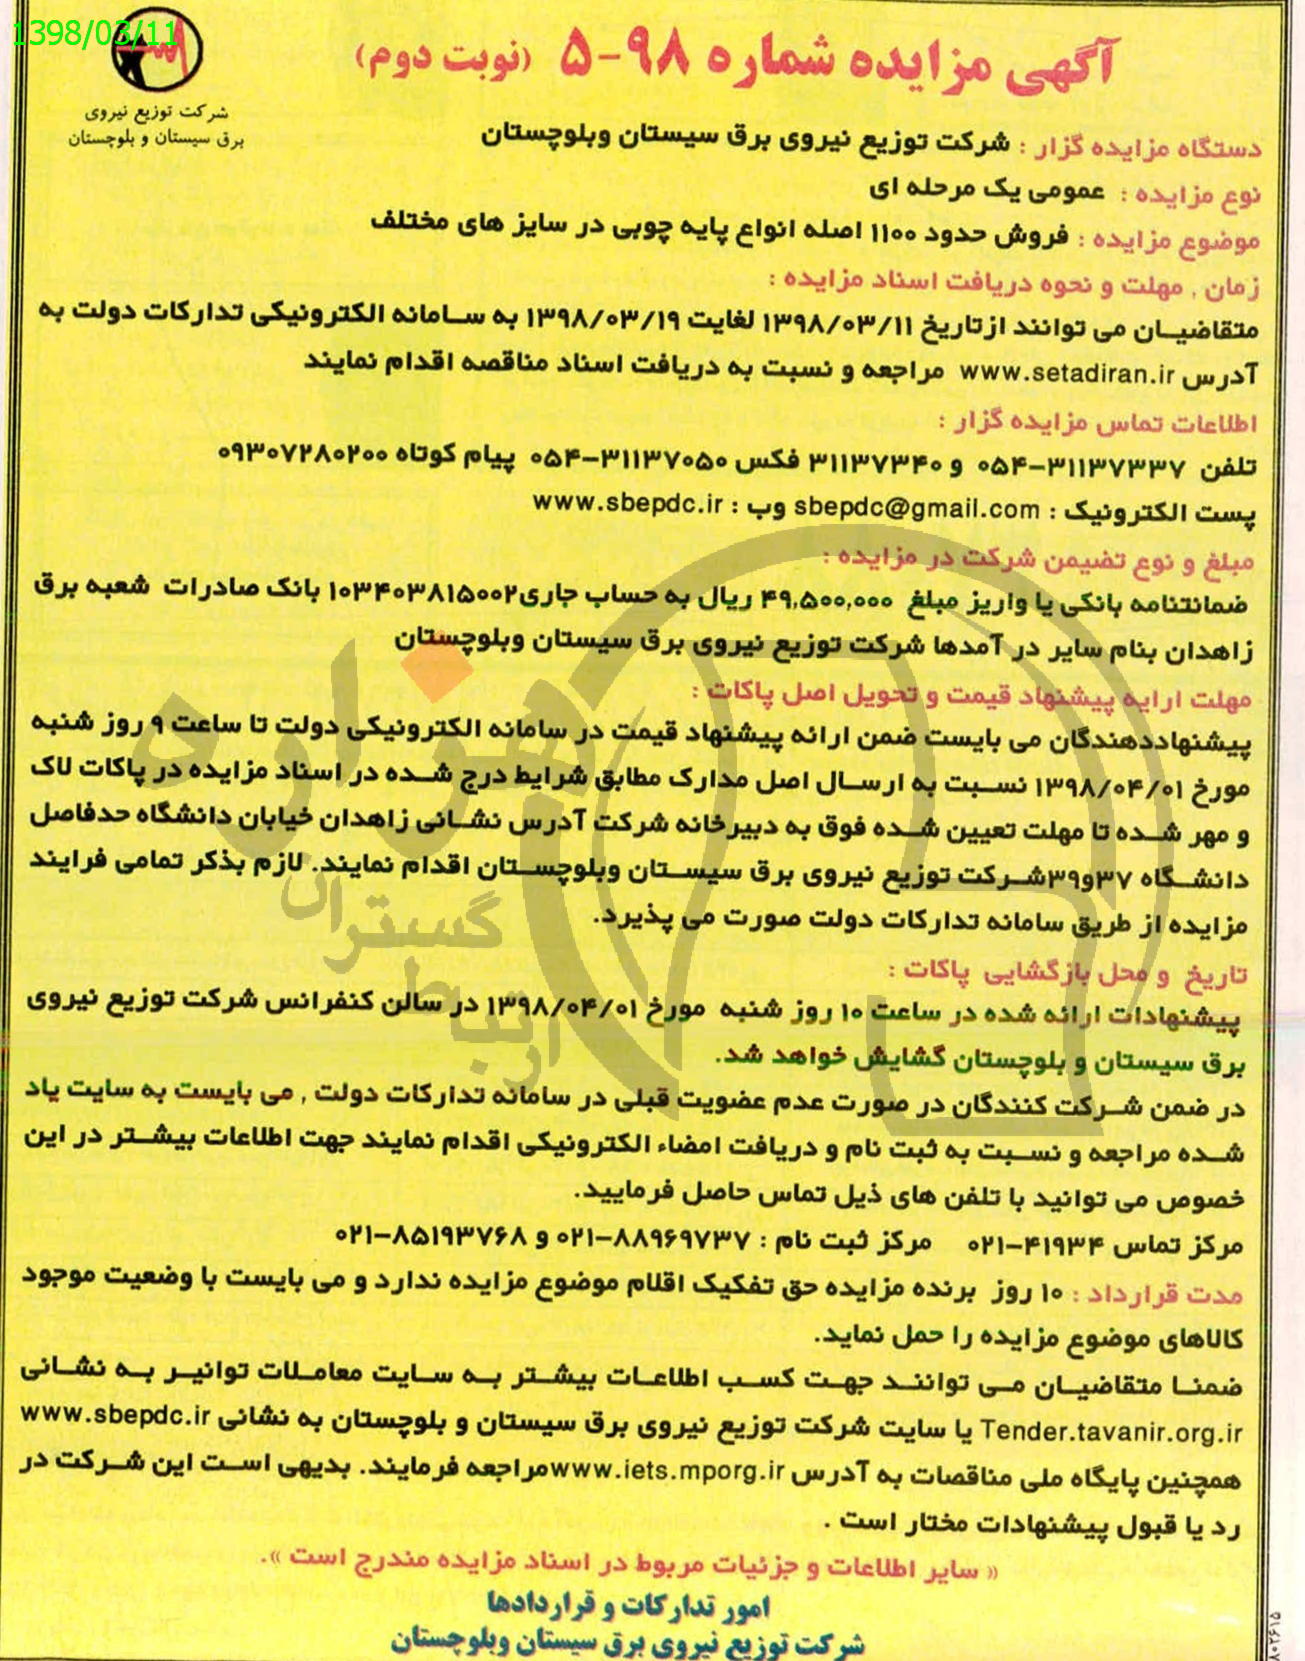 1398/03/11
شرکت توزیع نیروی
برق سیستان و بلوچستان
آگهی مزایده شماره ۹۸-۵ (نوبت دوم)
دستگاه مزایده گزار : شرکت توزیع نیروی برق سیستان وبلوچستان
نوع مزایده : عمومی یک مرحله ای
موضوع مزایده : فروش حدود ۱۱۰۰ اصله انواع پایه چوبی در سایز های مختلف
زمان , مهلت و نحوه دریافت اسناد مزایده :
متقاضیان می توانند ازتاریخ ۱۳۹۸/۰۳/۱۱ لغایت ۱۳۹۸/۰۳/۱۹ به سامانه الکترونیکی تدارکات دولت به
آدرس www.setadiran.ir مراجعه و نسبت به دریافت اسناد مناقصه اقدام نمایند
اطلاعات تماس مزایده گزار :
تلفن ۳۱۱۳۷۳۳۷-۰۵۴ و ۳۱۱۳۷۳۴۰ فکس ۳۱۱۳۷۰۵۰-۰۵۴ پیام کوتاه ۰۹۳۰۷۲۸۰۲۰۰
پست الکترونیک : sbepdc@gmail.com وب : www.sbepdc.ir
مبلغ و نوع تضیمن شرکت در مزایده :
ضمانتنامه بانکی یا واریز مبلغ ۴۹,۵۰۰,۰۰۰ ریال به حساب جاری۱۰۳۴۰۳۸۱۵۰۰۲ بانک صادرات شعبه برق
زاهدان بنام سایر در آمدها شرکت توزیع نیروی برق سیستان وبلوچستان
مهلت ارایه پیشنهاد قیمت و تحویل اصل پاکات :
پیشنهاددهندگان می بایست ضمن ارائه پیشنهاد قیمت در سامانه الکترونیکی دولت تا ساعت ۹ روز شنبه
مورخ ۱۳۹۸/۰۴/۰۱ نسبت به ارسال اصل مدارک مطابق شرایط درج شده در اسناد مزایده در پاکات لاک
و مهر شده تا مهلت تعیین شده فوق به دبیرخانه شرکت آدرس نشانی زاهدان خیابان دانشگاه حدفاصل
دانشگاه ۳۷و۳۹شرکت توزیع نیروی برق سیستان وبلوچستان اقدام نمایند. لازم بذکر تمامی فرایند
مزایده از طریق سامانه تدارکات دولت صورت می پذیرد.
تاریخ و محل بازگشایی پاکات :
پیشنهادات ارائه شده در ساعت ۱۰ روز شنبه مورخ ۱۳۹۸/۰۴/۰۱ در سالن کنفرانس شرکت توزیع نیروی
برق سیستان و بلوچستان گشایش خواهد شد.
در ضمن شرکت کنندگان در صورت عدم عضویت قبلی در سامانه تدارکات دولت , می بایست به سایت یاد
شده مراجعه و نسبت به ثبت نام و دریافت امضاء الکترونیکی اقدام نمایند جهت اطلاعات بیشتر در این
خصوص می توانید با تلفن های ذیل تماس حاصل فرمایید.
مرکز تماس ۴۱۹۳۴-۰۲۱ مرکز ثبت نام : ۸۸۹۶۹۷۳۷-۰۲۱ و ۸۵۱۹۳۷۶۸-۰۲۱
مدت قرارداد : ۱۰ روز برنده مزایده حق تفکیک اقلام موضوع مزایده ندارد و می بایست با وضعیت موجود
کالاهای موضوع مزایده را حمل نماید.
ضمنا متقاضیان می توانند جهت کسب اطلاعات بیشتر به سایت معاملات توانیر به نشانی
Tender.tavanir.org.ir یا سایت شرکت توزیع نیروی برق سیستان و بلوچستان به نشانی www.sbepdc.ir
همچنین پایگاه ملی مناقصات به آدرس www.iets.mporg.irمراجعه فرمایند. بدیهی است این شرکت در
رد یا قبول پیشنهادات مختار است .
« سایر اطلاعات و جزئیات مربوط در اسناد مزایده مندرج است ».
امور تدارکات و قراردادها
شرکت توزیع نیروی برق سیستان وبلوچستان
هزاره
گستران
ارتباط